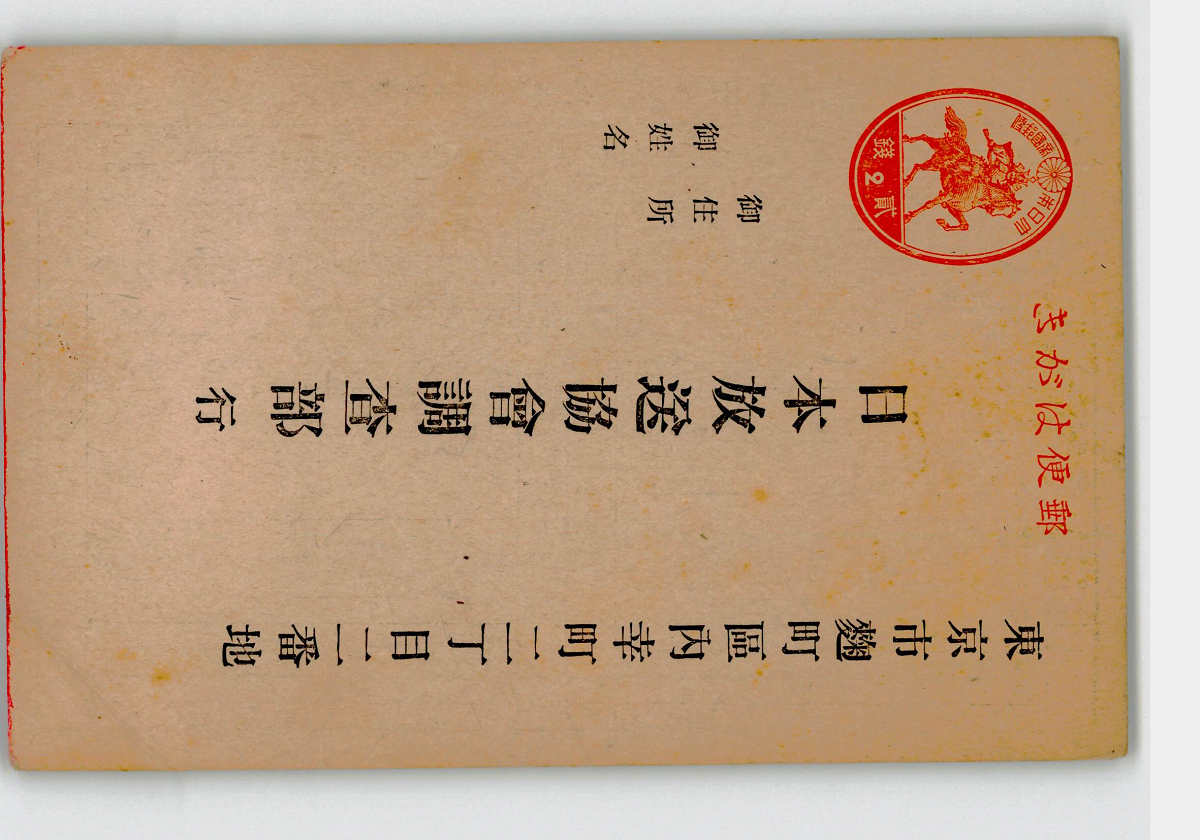 郵便はがき
大日本帝國郵便
貳2錢
東京市麴町區内幸町二丁目二番地
日本放送協會調査部行
御住所
御姓名